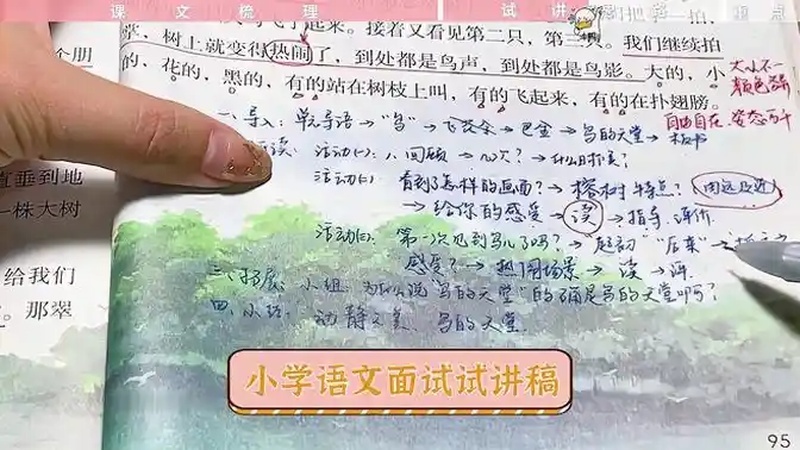 课文梳理 试讲 重点
飞了起来。接着又看见第二只,第三只。我们继续拍
掌,树上就变得热闹了,到处都是鸟声,到处都是鸟影。大的,小
的,花的,黑的,有的站在树枝上叫,有的飞起来,有的在扑翅膀。
大小不一
自由自在 姿态万千
个朋
直垂到地
一株大树
给我们
。那翠
一、导入:单元导语→“鸟”→飞花令→巴金→鸟的天堂→板书
读:活动(一):回顾→几次?→什么时候去?
活动(二) 看到了怎样的画面?→榕树特点?(由远及近)
→给你的感受→读→指导、评价
活动(三):第一次见到鸟儿了吗?→“起初”“后来”→
感受?→热闹场景→读→评
三、拓展:小组:为什么说“鸟的天堂”的确是鸟的天堂啊?
四、小结:动静之美、鸟的天堂
小学语文面试试讲稿
95